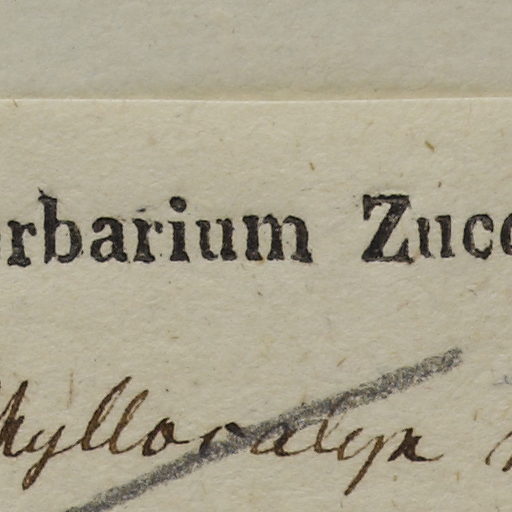 erbarium Zucc
hyllocalyx